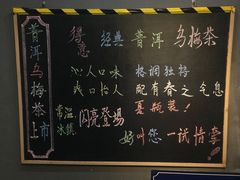 普洱乌梅茶上市
得意 经典 普洱 乌梅茶
沁人口味 格调独特
爽口怡人 配有春之气息
常温 冰镇 闪亮登場 夏瓶装!
好叫您一试情享